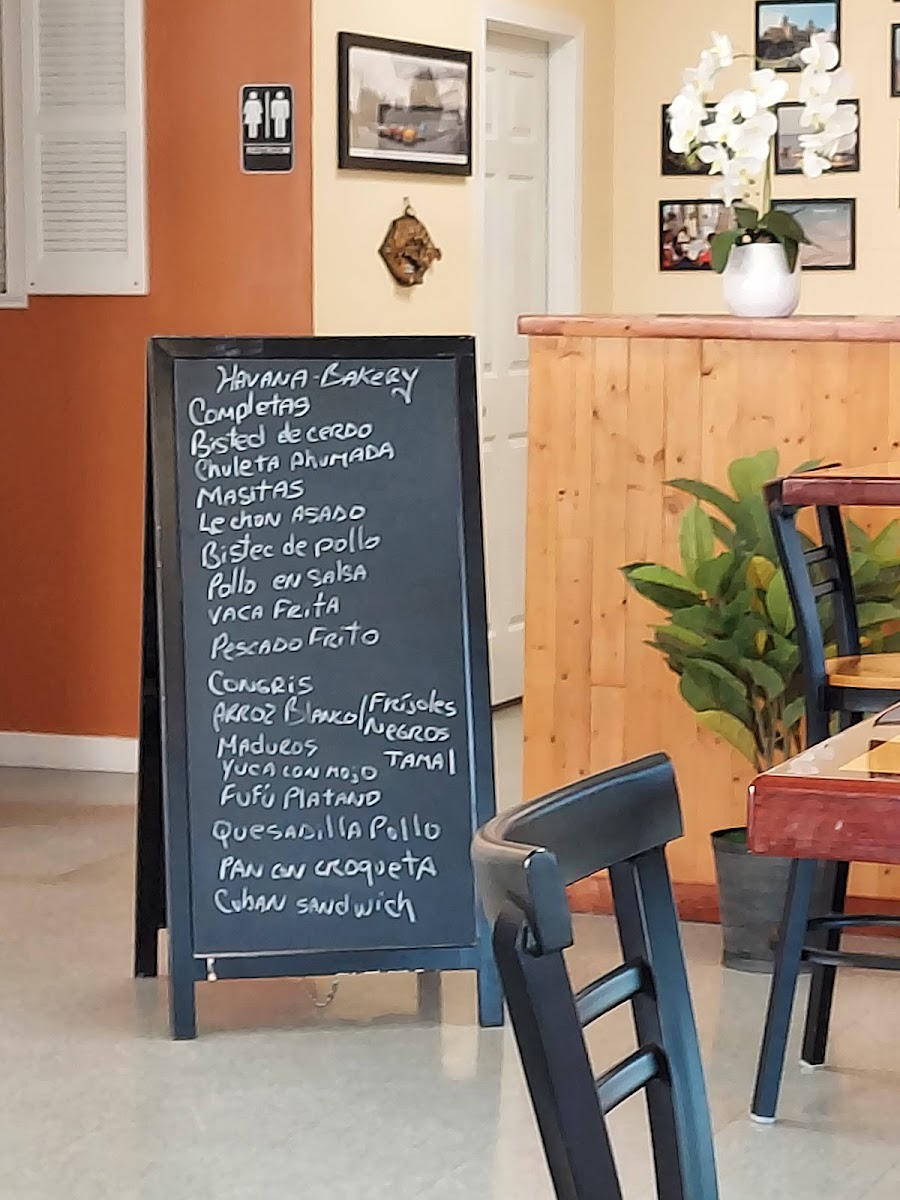 HAVANA-BAKERY
Completas
Bisted de CERDO
Chuleta AhuMADA
MASITAS
Lechon ASADO
Bistec de pollo
Pollo en SALSA
VACA FRITA
PESCADO FRITO
CONGRIS
ARROZ BLANCO/Frijoles NEGROS
MADUROS
TAMAl
YUCA CON MOJO
FUFÚ PLATANO
QUESADILLA POLLO
PAN CON CROQUETA
Cuban SANdwich